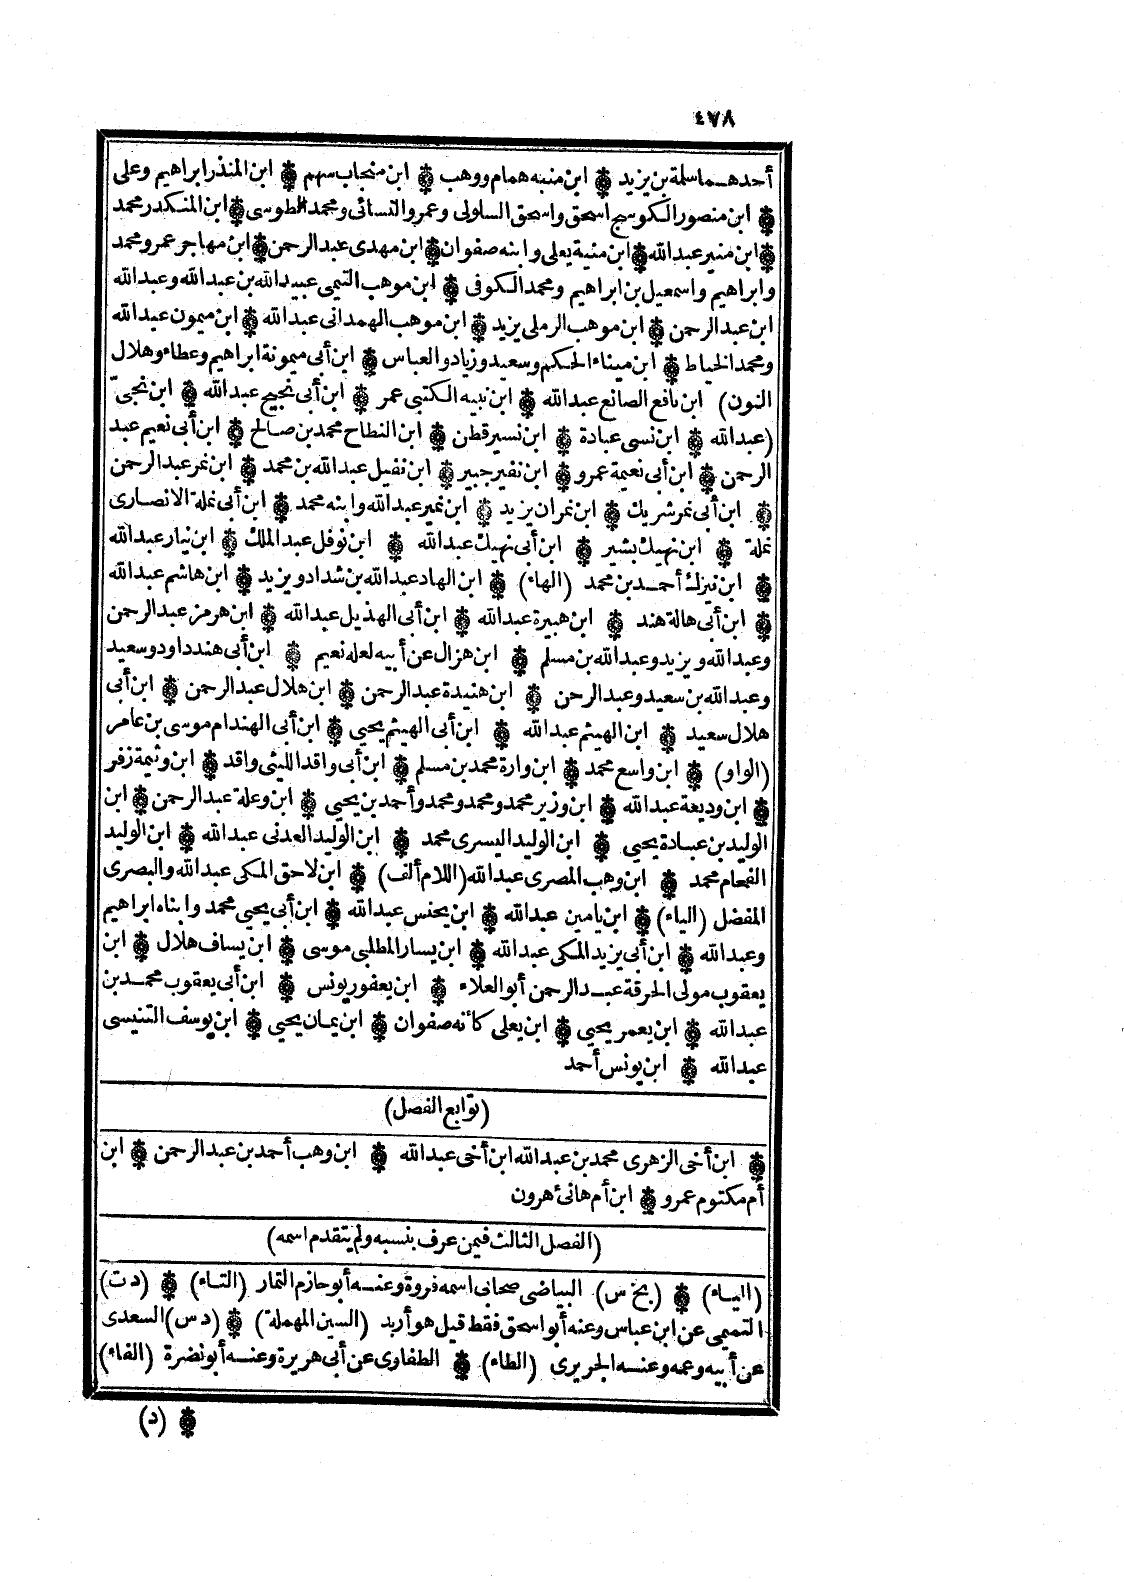 ٤٧٨
أحدهـما سلمة بن يزيد ❁ ابن منبه همام ووهب ❁ ابن منجاب سهم ❁ ابن المنذر ابراهيم وعلى
❁ ابن منصور الكوسج اسحق واسحق السلولى وعمرو النسائى ومحمد الطوسى ❁ ابن المنكدر محمد
❁ ابن منير عبدالله ❁ ابن منية يعلى وابنه صفوان ❁ ابن مهدى عبدالرحمن ❁ ابن مهاجر عمرو ومحمد
وابراهيم واسمعيل بن ابراهيم ومحمد الكوفى ❁ ابن موهب التيمى عبيدالله بن عبدالله وعبدالله
ابن عبدالرحمن ❁ ابن موهب الرملى يزيد ❁ ابن موهب الهمدانى عبدالله ❁ ابن ميمون عبدالله
ومحمد الخياط ❁ ابن ميناء الحكم وسعيد وزياد والعباس ❁ ابن أبى ميمونة ابراهيم وعطاء وهلال
النون) ابن نافع الصانع عبدالله ❁ ابن نبيه الكتبى عمر ❁ ابن أبى نجيح عبدالله ❁ ابن نجىّ
(عبدالله ❁ ابن نسى عبادة ❁ ابن نسير قطن ❁ ابن النطاح محمد بن صالح ❁ ابن أبى نعيم عبد
الرحمن ❁ ابن أبى نعيمة عمرو ❁ ابن نفير جبير ❁ ابن نفيل عبدالله بن محمد ❁ ابن نمر عبدالرحمن
❁ ابن أبى نمر شريك ❁ ابن نمران يزيد ❁ ابن نمير عبدالله وابنه محمد ❁ ابن أبى نملة الانصارى
نملة ❁ ابن نهيك بشير ❁ ابن أبى نهيك عبدالله ❁ ابن نوفل عبدالملك ❁ ابن نيار عبدالله
❁ ابن نيزك أحمـد بن محمد (الهاء) ❁ ابن الهاد عبدالله بن شداد ويزيد ❁ ابن هاشم عبدالله
❁ ابن أبى هالة هند ❁ ابن هبيرة عبدالله ❁ ابن أبى الهذيل عبدالله ❁ ابن هرمز عبدالرحمن
وعبدالله ويزيد وعبدالله بن مسلم ❁ ابن هزال عن أبيه لعله نعيم ❁ ابن أبى هند داود وسعيد
وعبدالله بن سعيد وعبدالرحن ❁ ابن هنيدة عبدالرحمن ❁ ابن هلال عبدالرحمن ❁ ابن أبى
هلال سعيد ❁ ابن الهيثم عبدالله ❁ ابن أبى الهيثم يحيى ❁ ابن أبى الهندام موسى بن عامر
(الواو) ❁ ابن واسع محمد ❁ ابن وارة محمد بن مسلم ❁ ابن أبى واقد الليثى واقد ❁ ابن وثيمة زفر
❁ ابن وديعة عبدالله ❁ ابن وزير محمد ومحمد ومحمد وأحمد بن يحيى ❁ ابن وعلة عبدالرحمن ❁ ابن
الوليد بن عبـادة يحيى ❁ ابن الوليد اليسرى محمد ❁ ابن الوليد العدنى عبدالله ❁ ابن الوليد
الفحام محمد ❁ ابن وهب المصرى عبدالله (اللام ألف) ❁ ابن لاحق المكى عبدالله والبصرى
المفضل (الياء) ❁ ابن يامين عبدالله ❁ ابن يحنس عبدالله ❁ ابن أبى يحيى محمد وابناه ابراهيم
وعبدالله ❁ ابن أبى يزيد المكى عبدالله ❁ ابن يسار المطلبى موسى ❁ ابن يساف هلال ❁ ابن
يعقوب مولى الحرقة عبـد الرحمن أبو العلاء ❁ ابن يعفور يونس ❁ ابن أبى يعقوب محمـد بن
عبدالله ❁ ابن يعمر يحيى ❁ ابن يعلى كأنه صفوان ❁ ابن يمان يحيى ❁ ابن يوسف التنيسى
عبدالله ❁ ابن يونس أحمد
(توابع الفصل)
❁ ابن أخى الزهرى محمد بن عبدالله ابن أخى عبدالله ❁ ابن وهب أحمد بن عبدالرحمن ❁ ابن
أم مكتوم عمرو ❁ ابن أم هانئ هرون
(الفصل الثالث فيمن عرف بنسبه ولم يتقدم اسمه)
(الباء) ❁ (بخ س) البياضى صحابى اسمه فروة وعنـه أبو حازم التمار (التـاء) ❁ (د ت)
التميمى عن ابن عباس وعنه أبو اسحق فقط قيل هو أربد (السين المهملة) ❁ (د س) السعدى
عن أبيه وعمه وعنـه الجريرى (الطاء) ❁ الطفاوى عن أبى هريرة وعنـه أبو نضرة (الفاء)
❁ (د)